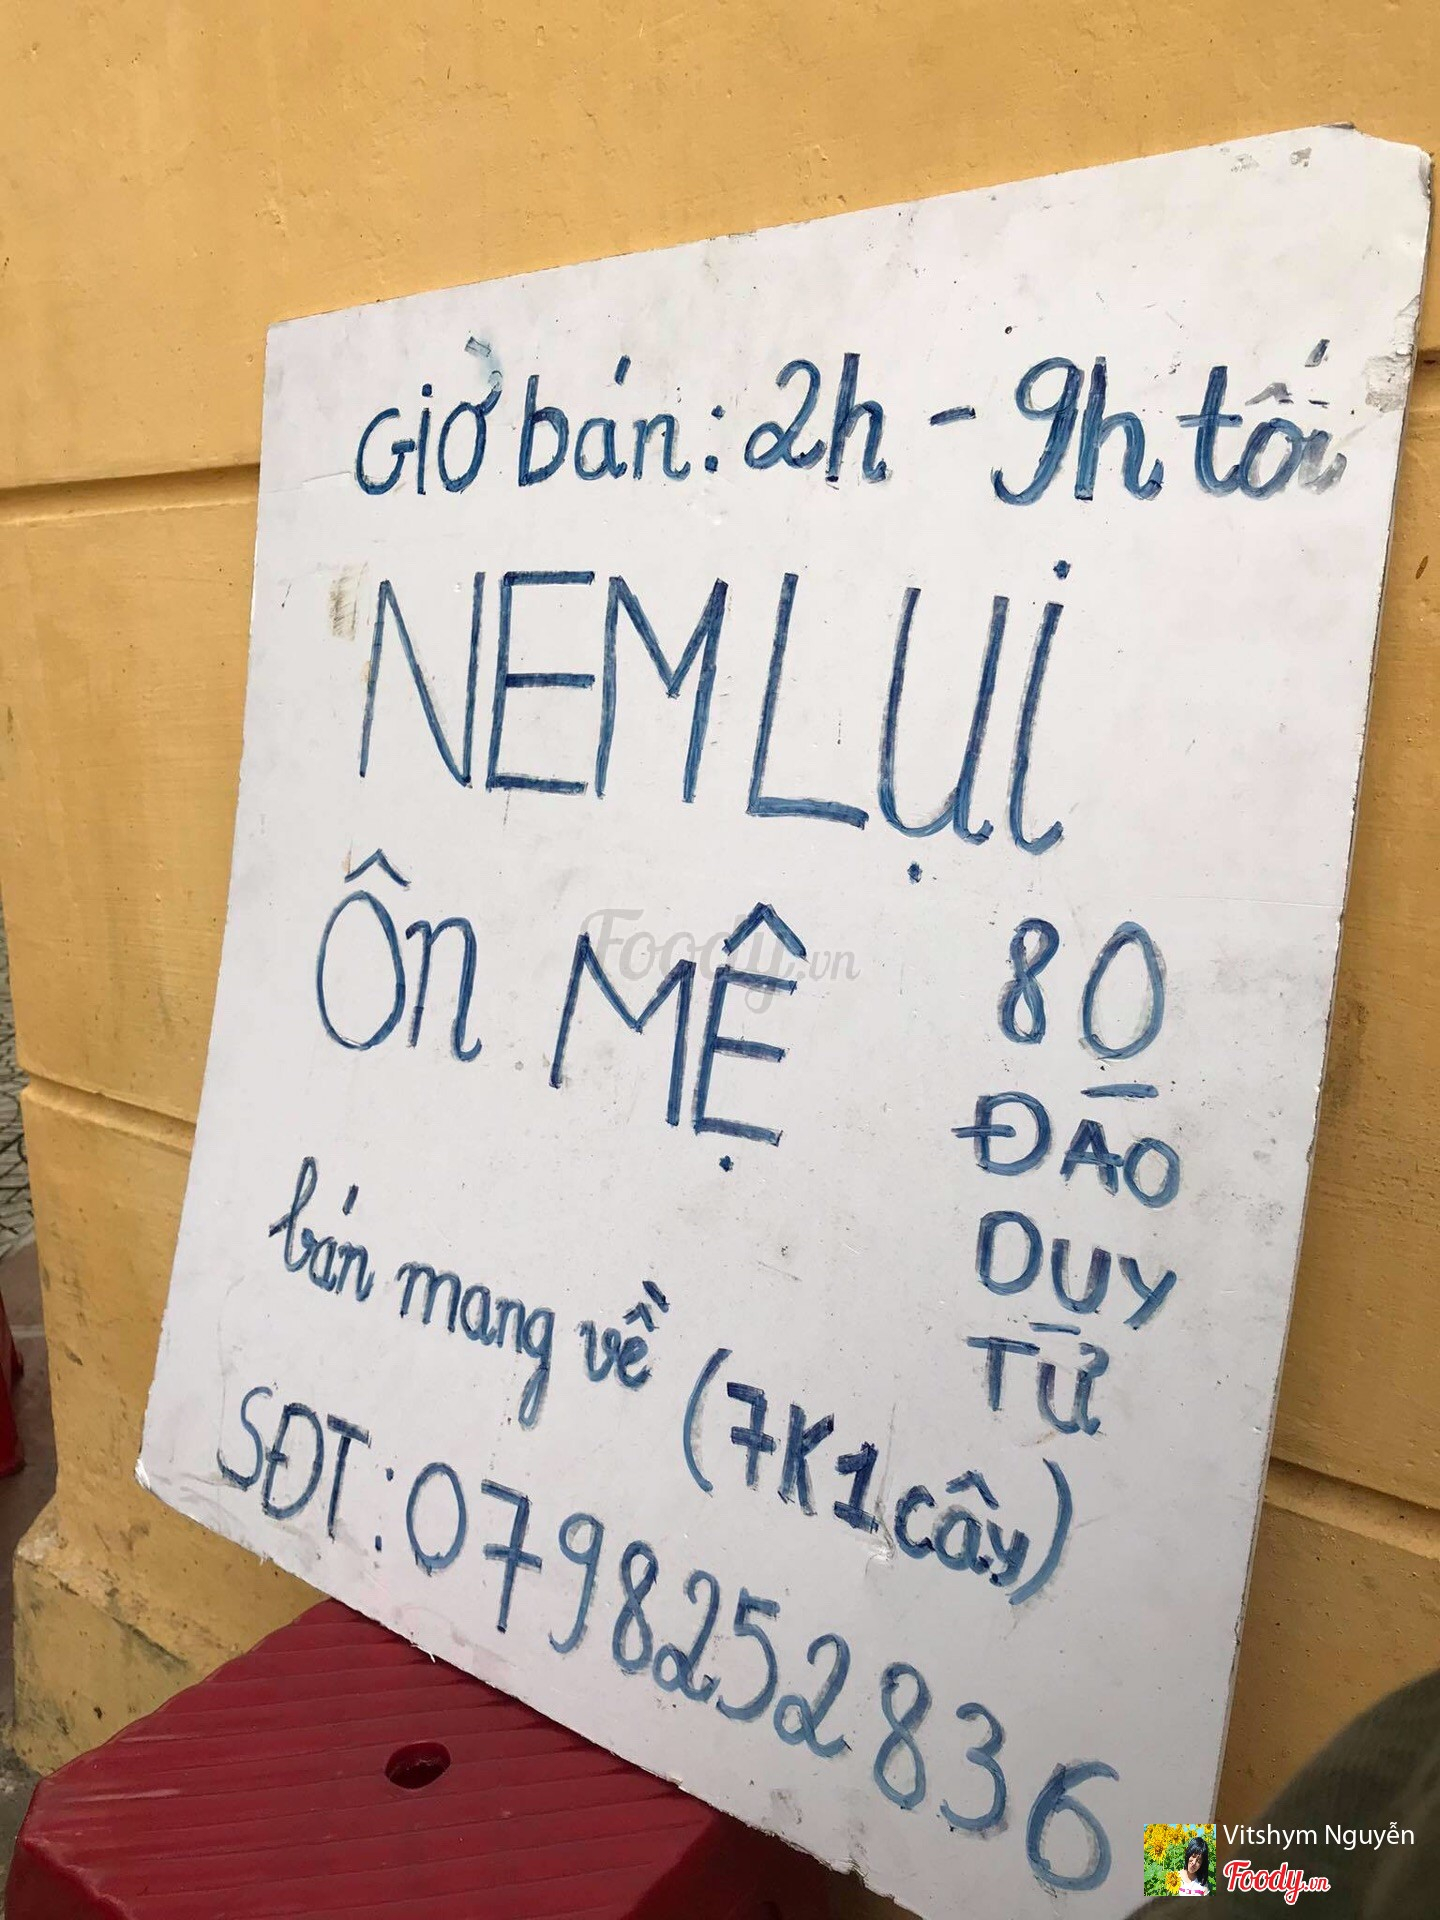 Giờ bán: 2h - 9h tối
NEM LỤi
Ôn MỆ
80
ĐÀO
DUY
TỪ
bán mang về (7K1cây)
SĐT: 0798252836
Foody.vn
Vitshym Nguyễn
Foody.vn